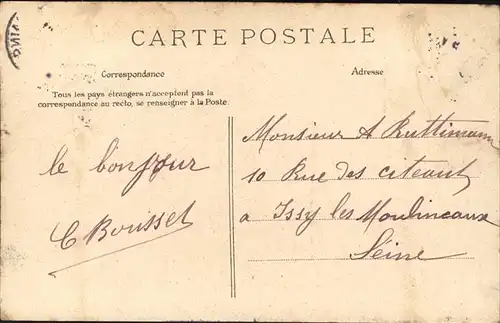 CARTE POSTALE
Correspondance
Adresse
Tous les pays étrangers n'acceptent pas la
correspondance au recto, se renseigner à la Poste.
le bonjour
C Bousset
Monsieur A Ruttimann
10 Rue des citeaux
a Issy les Moulineaux
Seine